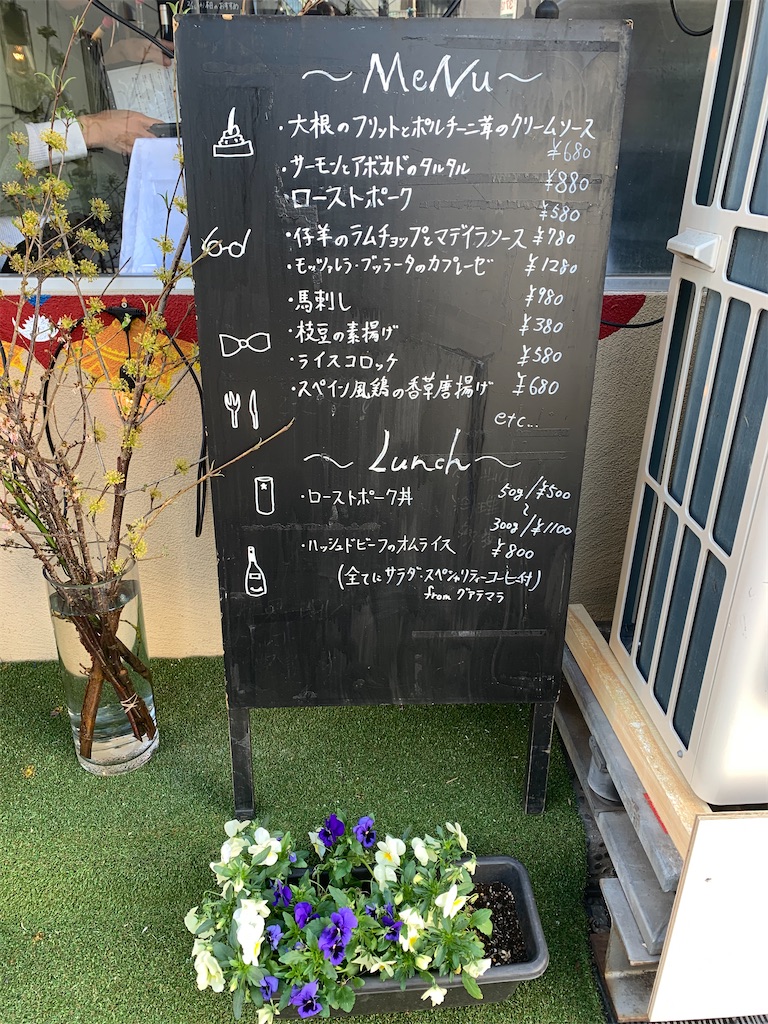 ～MeNu～
・大根のフリットとポルチーニ茸のクリームソース
¥680
・サーモンとアボカドのタルタル ¥880
・ローストポーク ¥580
・仔羊のラムチョップとマデイラソース ¥780
・モッツァレラ・ブッラータのカプレーゼ ¥1280
・馬刺し ¥980
・枝豆の素揚げ ¥380
・ライスコロッケ ¥580
・スペイン風鶏の香草唐揚げ ¥680
etc...
～Lunch～
・ローストポーク丼 50g/¥500
～
300g/¥1100
・ハッシュドビーフのオムライス ¥800
(全てにサラダ・スペシャリティーコーヒー付)
from グアテマラ